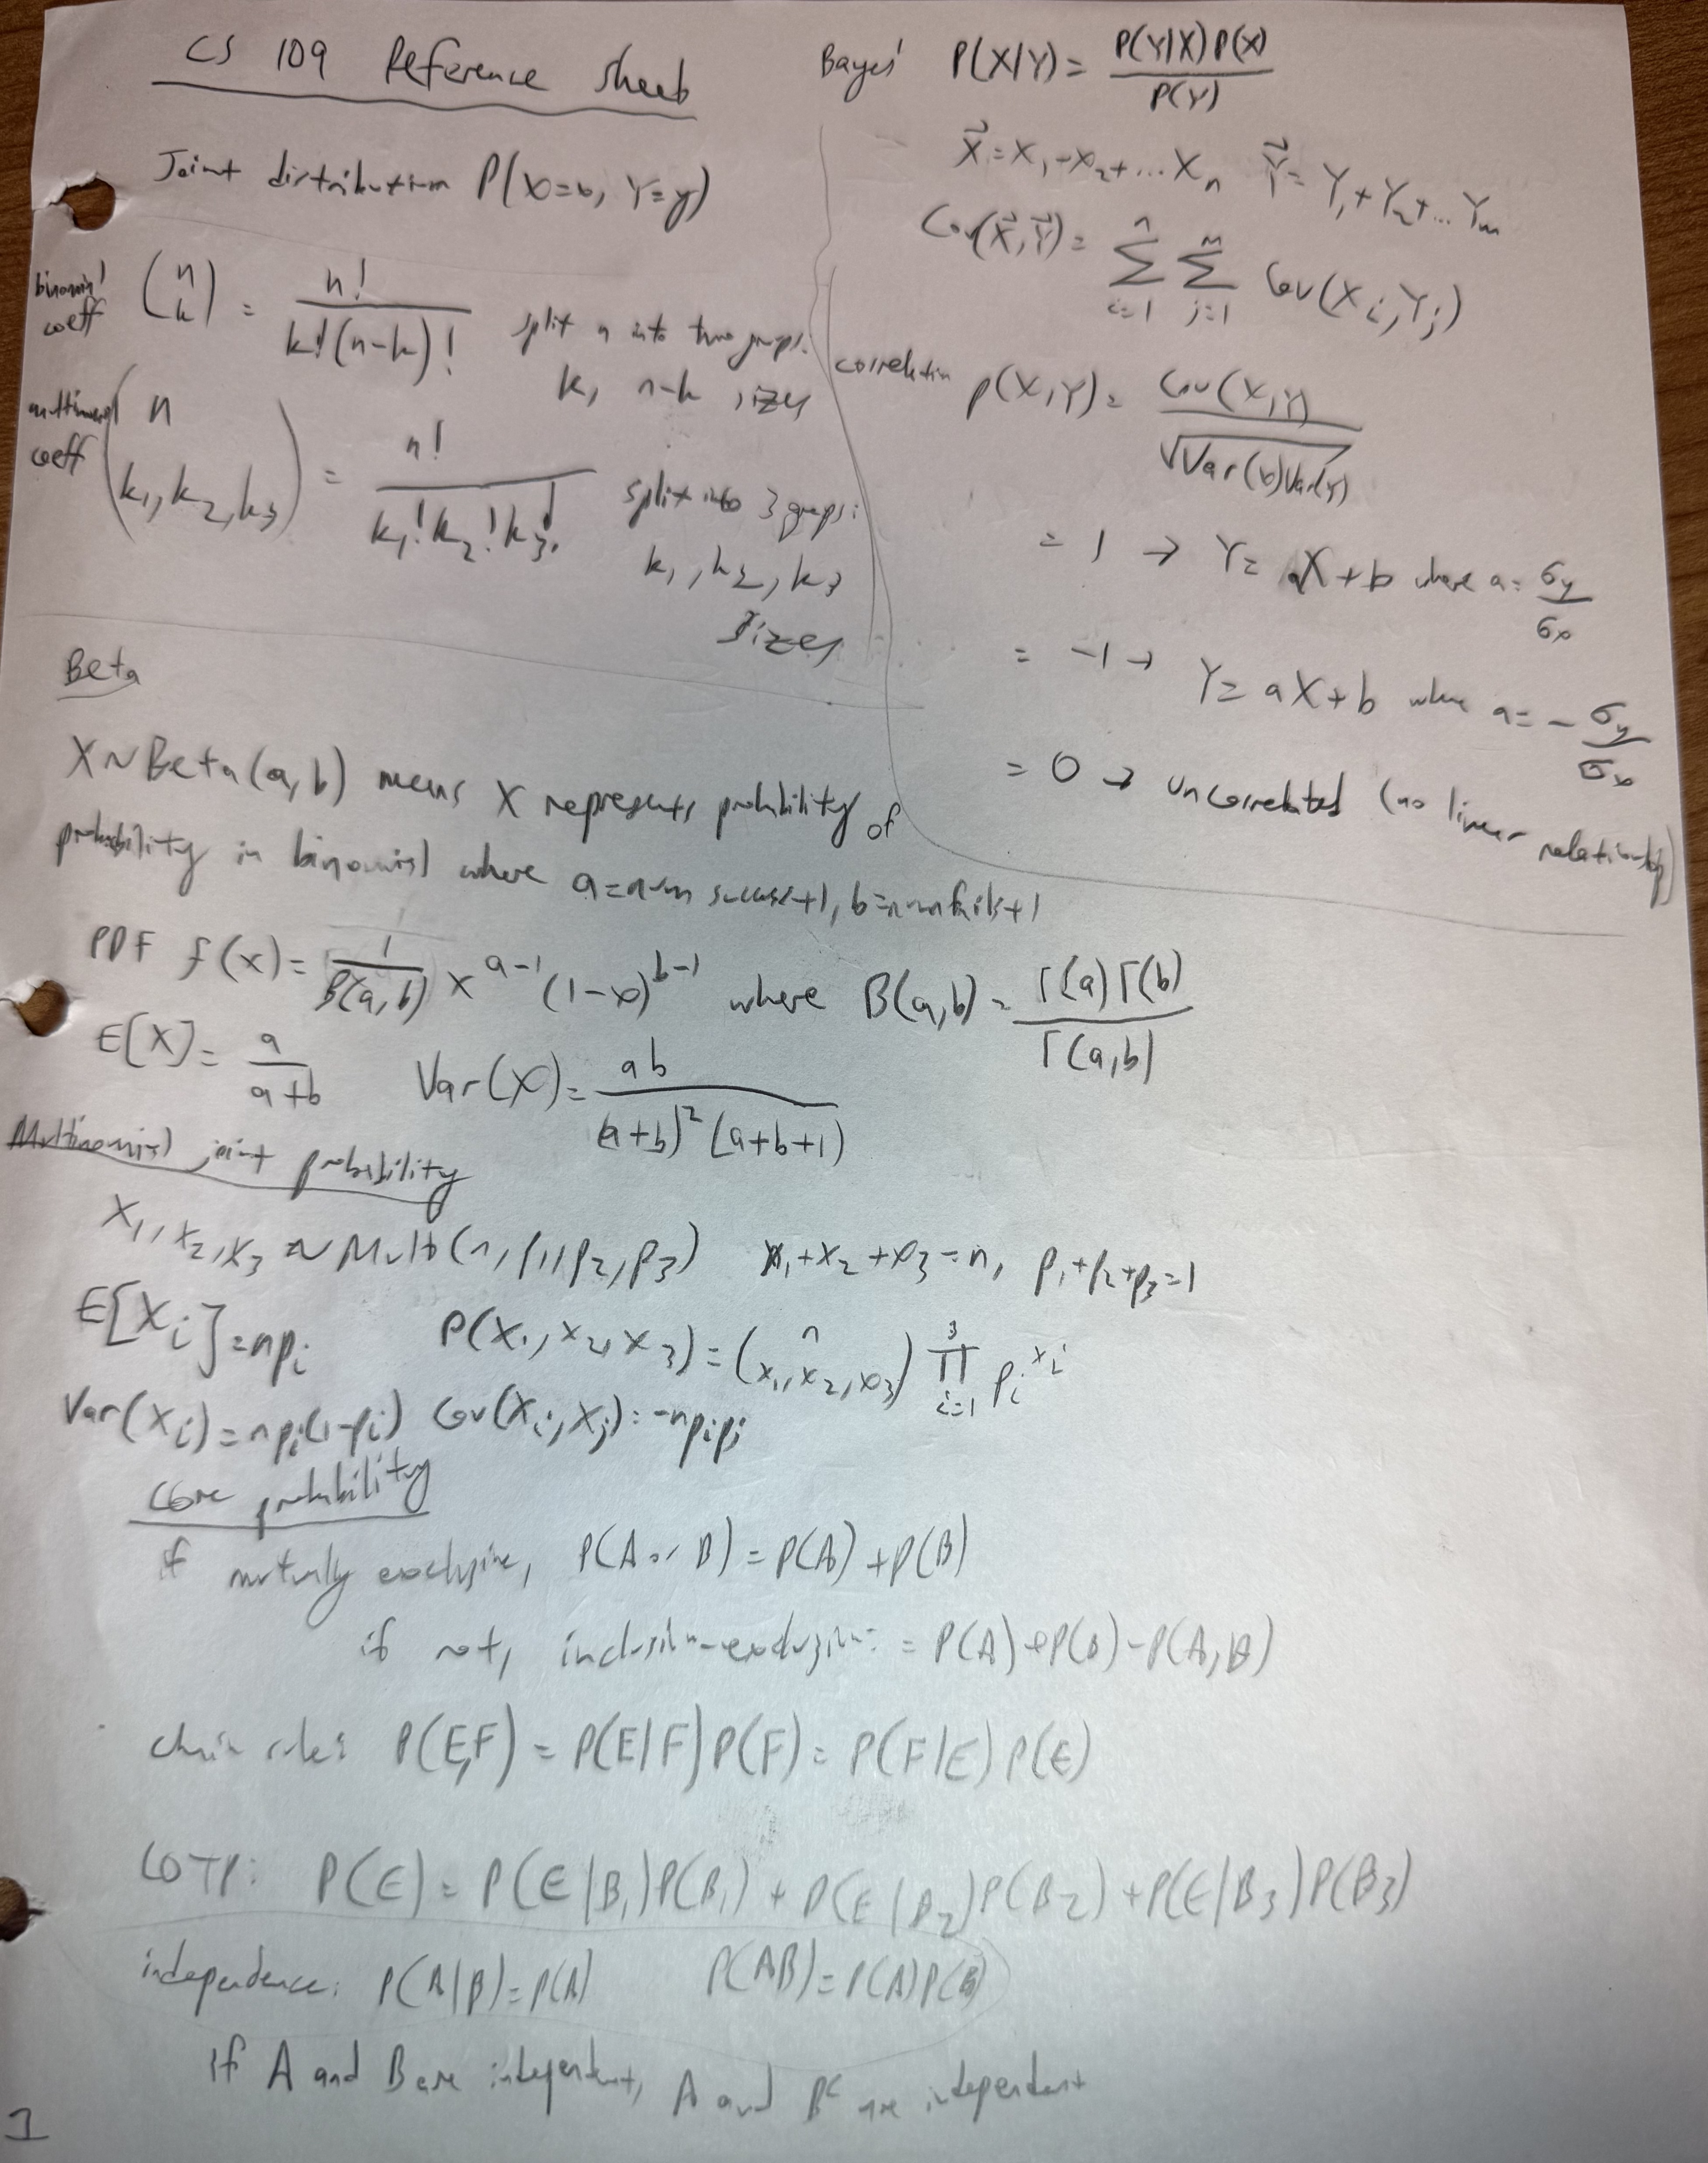 CS 109 Reference Sheet
Joint distribution P(X=x, Y=y)
binomial coeff (n k) = n! / k!(n-k)! split n into two groups: k, n-k sizes
multinomial coeff (n k₁,k₂,k₃) = n! / k₁!k₂!k₃! split into 3 groups: k₁, k₂, k₃ sizes
Bayes' P(X|Y) = P(Y|X)P(X) / P(Y)
X⃗ = X₁+X₂+...Xₙ Y⃗ = Y₁+Y₂+...Yₘ
Cov(X⃗,Y⃗) = Σⁿᵢ₌₁ Σᵐⱼ₌₁ Cov(Xᵢ,Yⱼ)
correlation ρ(X,Y) = Cov(X,Y) / √Var(x)Var(y)
= 1 → Y = aX+b where a = σy/σx
= -1 → Y = aX+b where a = -σy/σx
= 0 → uncorrelated (no linear relationship)
Beta
X~Beta(a,b) means X represents probability of
probability in binomial where a=num success+1, b=num fails+1
PDF f(x) = 1/B(a,b) x^(a-1) (1-x)^(b-1) where B(a,b) = Γ(a)Γ(b) / Γ(a,b)
E[X] = a / a+b Var(X) = ab / (a+b)²(a+b+1)
Multinomial joint probability
X₁,X₂,X₃ ~ Mult(n,p₁,p₂,p₃) x₁+x₂+x₃=n, p₁+p₂+p₃=1
E[Xᵢ]=npᵢ P(X₁,X₂,X₃) = (n x₁,x₂,x₃) ∏³ᵢ₌₁ pᵢ^xᵢ
Var(Xᵢ)=npᵢ(1-pᵢ) Cov(Xᵢ,Xⱼ)=-npᵢpⱼ
Core probability
if mutually exclusive, P(A or B) = P(A)+P(B)
if not, inclusion-exclusion: = P(A)+P(B)-P(A,B)
chain rule: P(E,F) = P(E|F)P(F) = P(F|E)P(E)
LOTP: P(E) = P(E|B₁)P(B₁) + P(E|B₂)P(B₂) + P(E|B₃)P(B₃)
independence: P(A|B)=P(A) P(AB)=P(A)P(B)
if A and B are independent, A and Bᶜ are independent
1